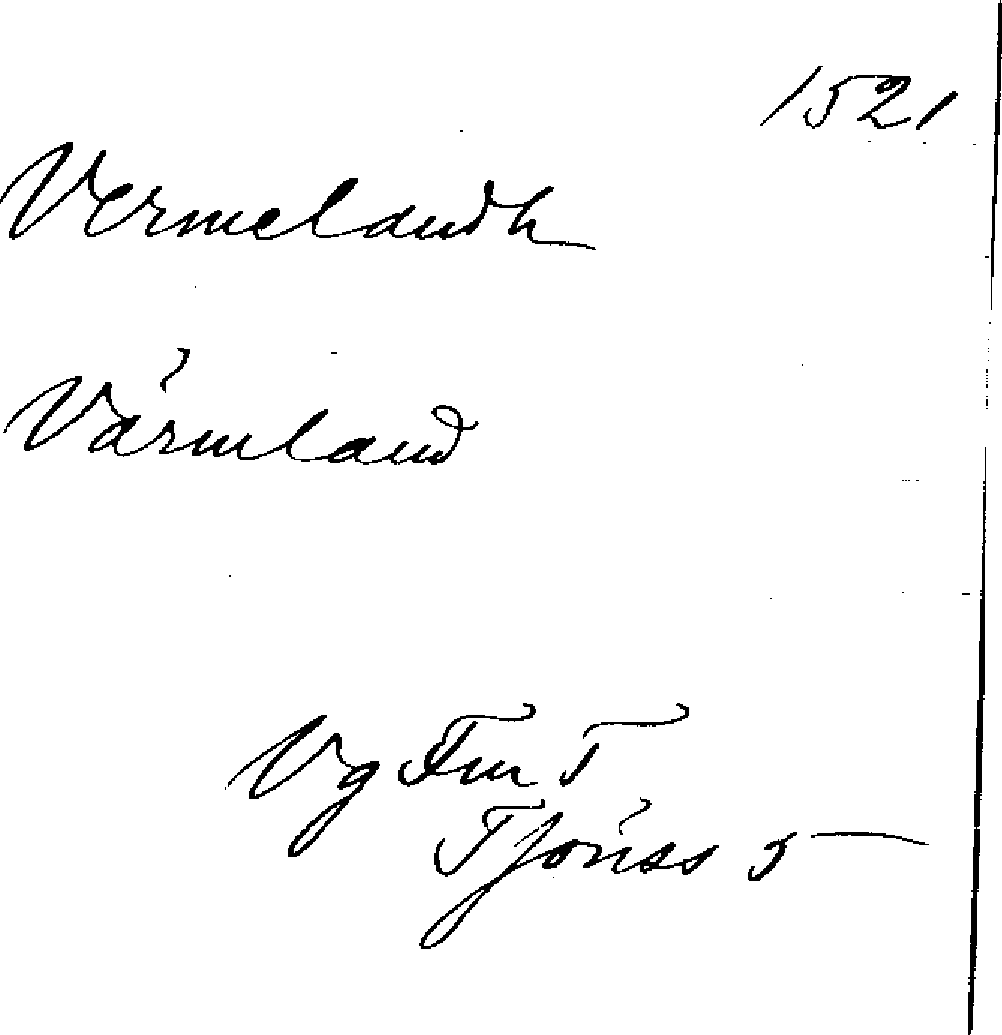 1521
Vermelandh
Värmland
Vg Fm T
5